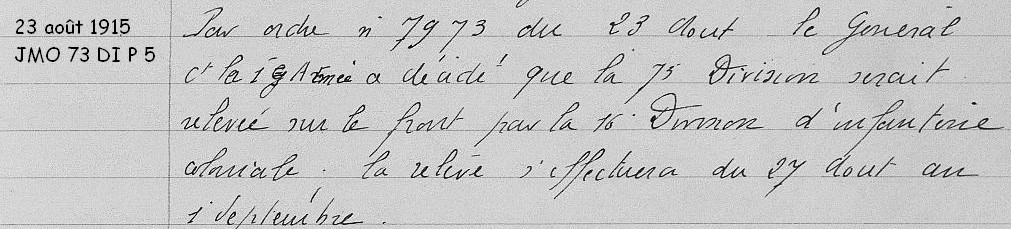 23 août 1915
JMO 73 DI P 5
Par ordre n° 7973 du 23 Aout le Général
Ct la 1e Armée a décidé que la 73 Division serait
relevée sur le front par la 16e Division d'infanterie
coloniale. la relève s'effectuera du 27 Aout au
1 Septembre.